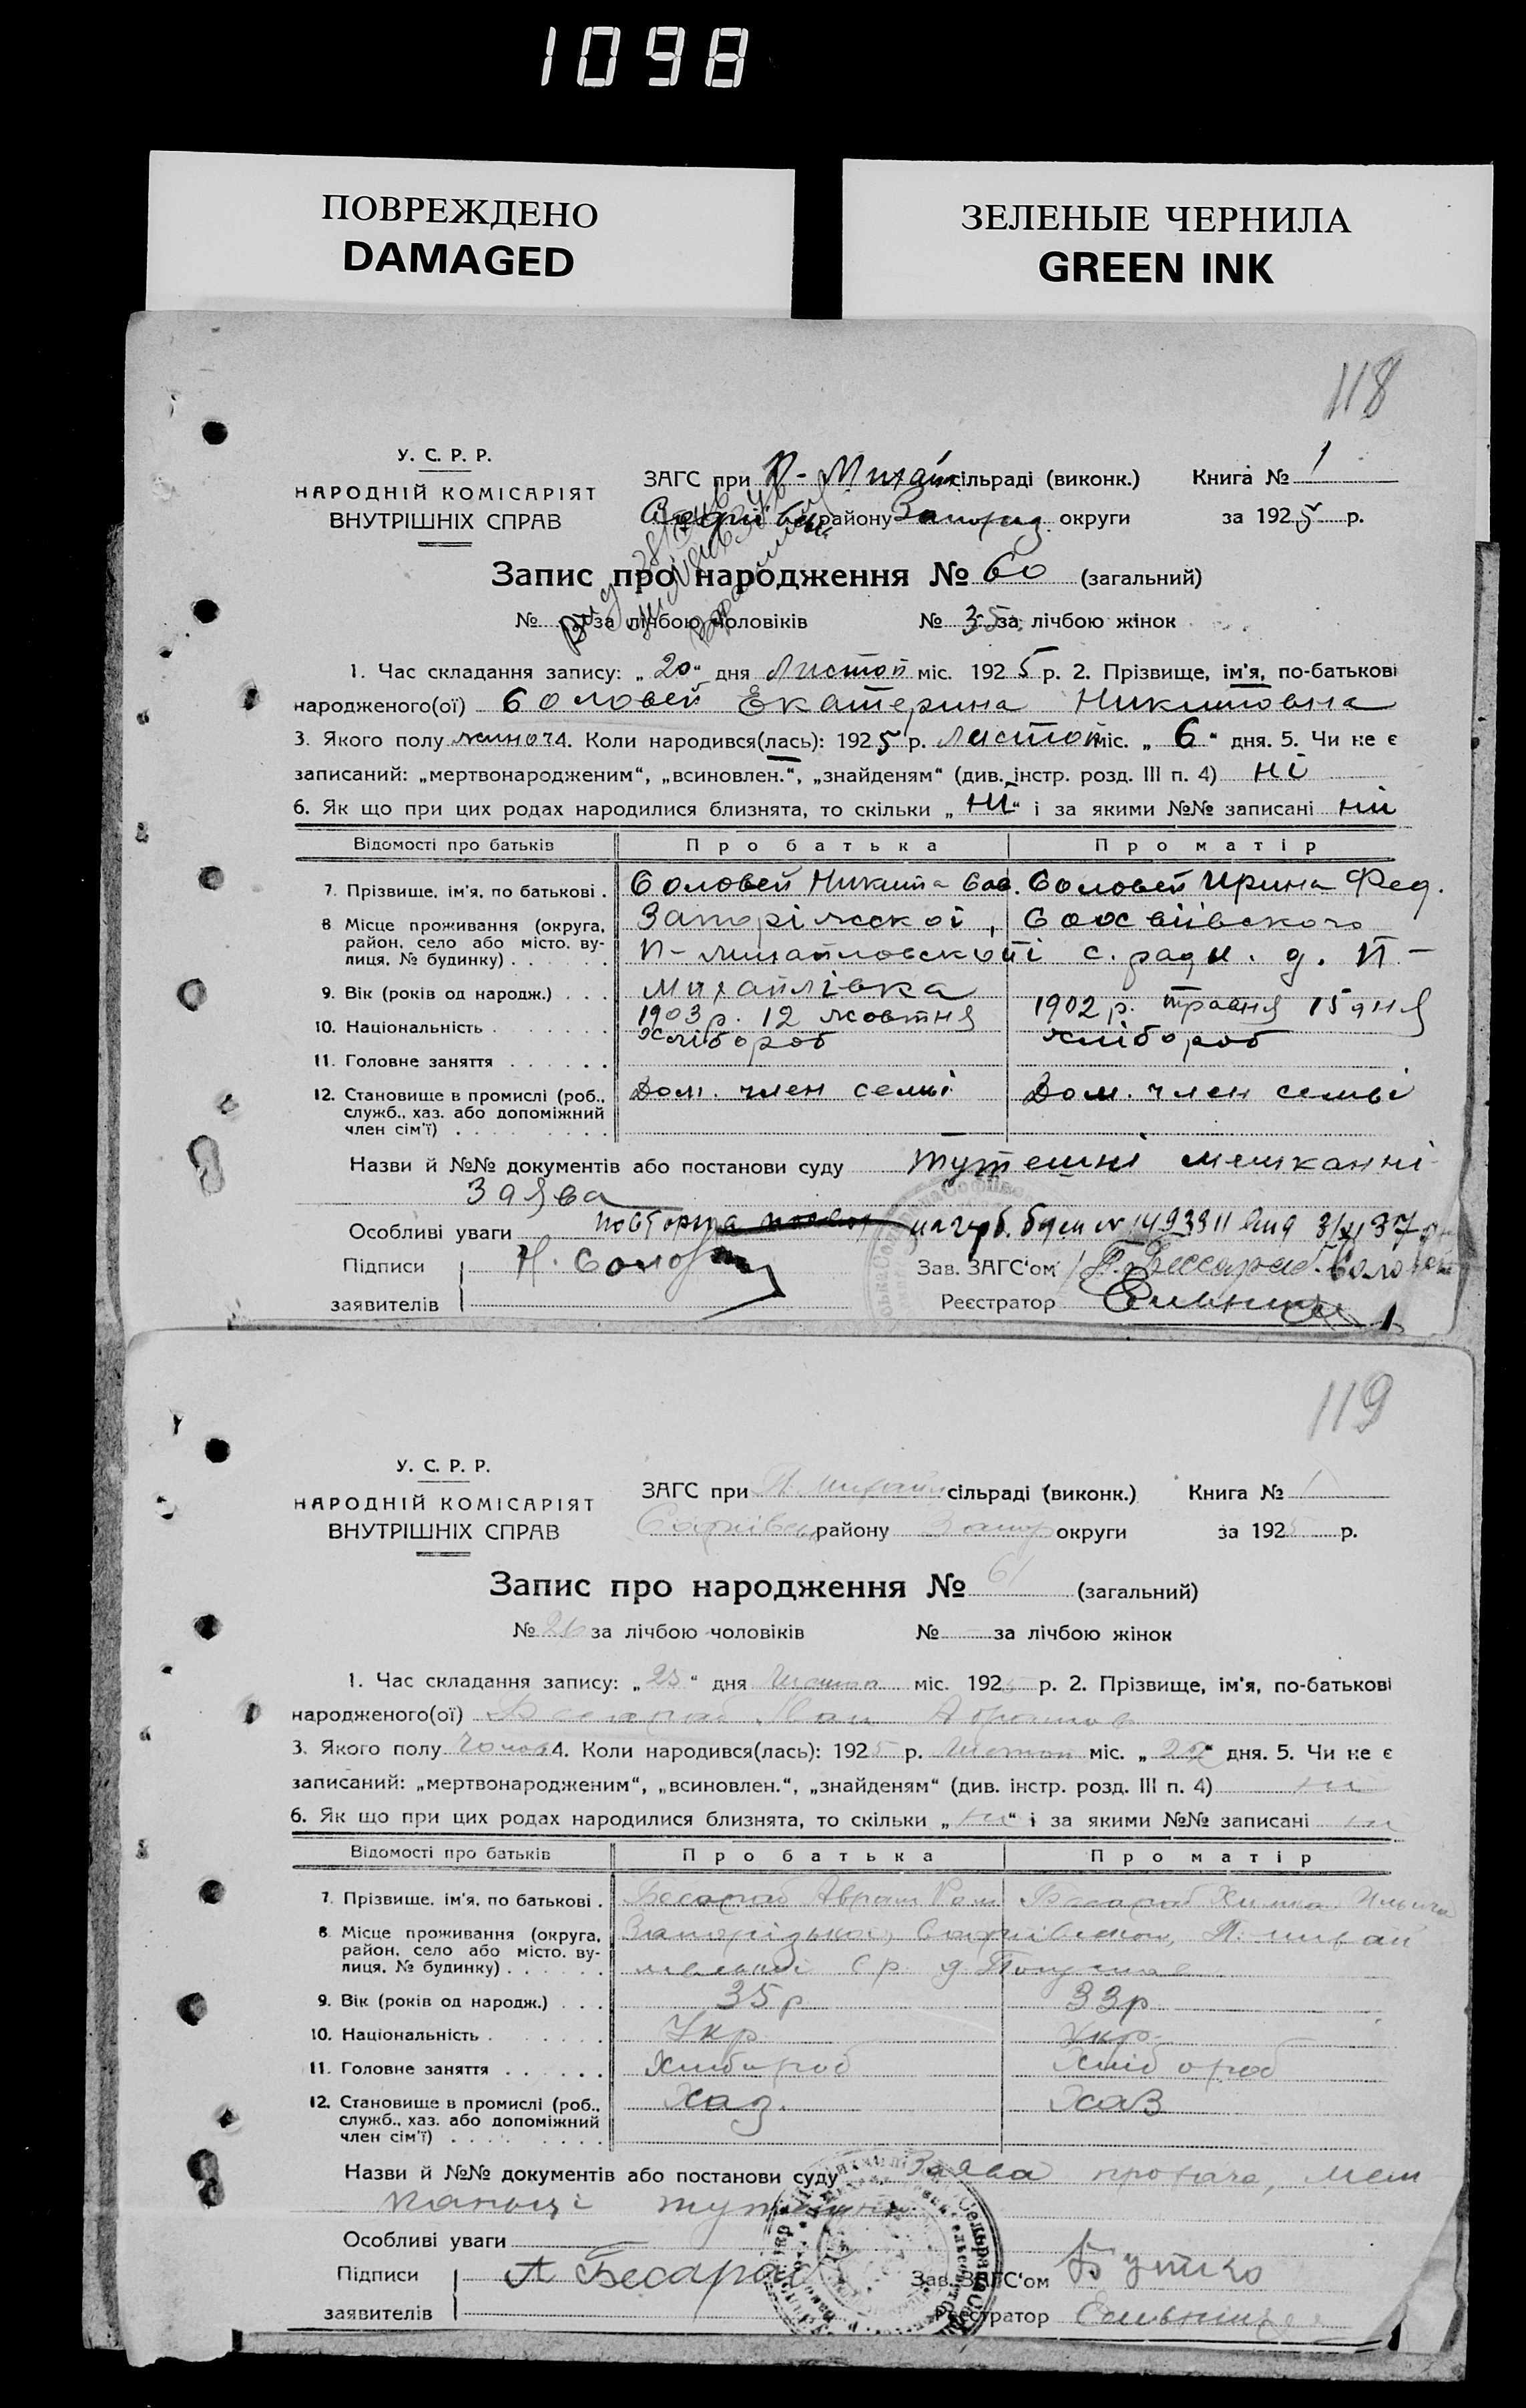 1098
ПОВРЕЖДЕНО
DAMAGED
ЗЕЛЕНЫЕ ЧЕРНИЛА
GREEN INK
118
У. С. Р. Р.
НАРОДНІЙ КОМІСАРІЯТ
ВНУТРІШНІХ СПРАВ
ЗАГС при П-Михайл сільраді (виконк.) Книга № 1
району Запориз. округи за 1925 р.
Запис про народження № 60 (загальний)
№ за лічбою чоловіків № 35 за лічбою жінок
1. Час складання запису: „20“ дня Листоп міс. 1925 р. 2. Прізвище, ім'я, по-батькові
народженого(ої) Соловей Екатерина Никитовна
3. Якого полу жиноч 4. Коли народився(лась): 1925 р. Листоп міс. „6“ дня. 5. Чи не є
записаний: „мертвонародженим“, „всиновлен.“, „знайденям“ (див. інстр. розд. III п. 4) ні
6. Як що при цих родах народилися близнята, то скільки „ні“ і за якими №№ записані ни
Відомості про батьків Про батька Про матір
7. Прізвище, ім'я, по батькові . Соловей Никита Сав. Соловей Ирина Фед.
8 Місце проживання (округа, район, село або місто, вулиця, № будинку) Запоріжскої, Софіївского
П-Михайловскоті с. ради. д. П-
9. Вік (років од народж.) Михайлівка
1903 р. 12 жовтня 1902 р. травня 15 дня
10. Національність хлібороб хлібороб
11. Головне заняття
12. Становище в промислі (роб., служб., хаз. або допоміжний член сім'ї) Дом. член семьі Дом. член семьі
Назви й №№ документів або постанови суду тутешні мешканні
Заява
Особливі уваги повторна
Підписи Н. Соловей Зав. ЗАГС'ом
заявителів Реєстратор
119
У. С. Р. Р.
НАРОДНІЙ КОМІСАРІЯТ
ВНУТРІШНІХ СПРАВ
ЗАГС при П. Михайл сільраді (виконк.) Книга № 1
Софиївськ району Запор округи за 1925 р.
Запис про народження № 61 (загальний)
№ 26 за лічбою чоловіків № за лічбою жінок
1. Час складання запису: „23“ дня Листоп міс. 192 р. 2. Прізвище, ім'я, по-батькові
народженого(ої) Бесараб Иван Абрамов
3. Якого полу чолов 4. Коли народився(лась): 1925 р. Листоп міс. „ “ дня. 5. Чи не є
записаний: „мертвонародженим“, „всиновлен.“, „знайденям“ (див. інстр. розд. III п. 4) ни
6. Як що при цих родах народилися близнята, то скільки „ни“ і за якими №№ записані ни
Відомості про батьків Про батька Про матір
7. Прізвище, ім'я, по батькові . Бесараб Авраам Ром Бесараб Химка
8. Місце проживання (округа, район, село або місто, вулиця, № будинку) Запорізької, Софиївської, П. михай
с р д
9. Вік (років од народж.) 35 р 33 р
10. Національність Укр Укр
11. Головне заняття Хлибороб Хлібороб
12. Становище в промислі (роб., служб., хаз. або допоміжний член сім'ї) Хаз. Хаз
Назви й №№ документів або постанови суду Заява прохача, меш
каньці
Особливі уваги
Підписи А Бесараб Зав. ЗАГС'ом Бутко
заявителів Реєстратор